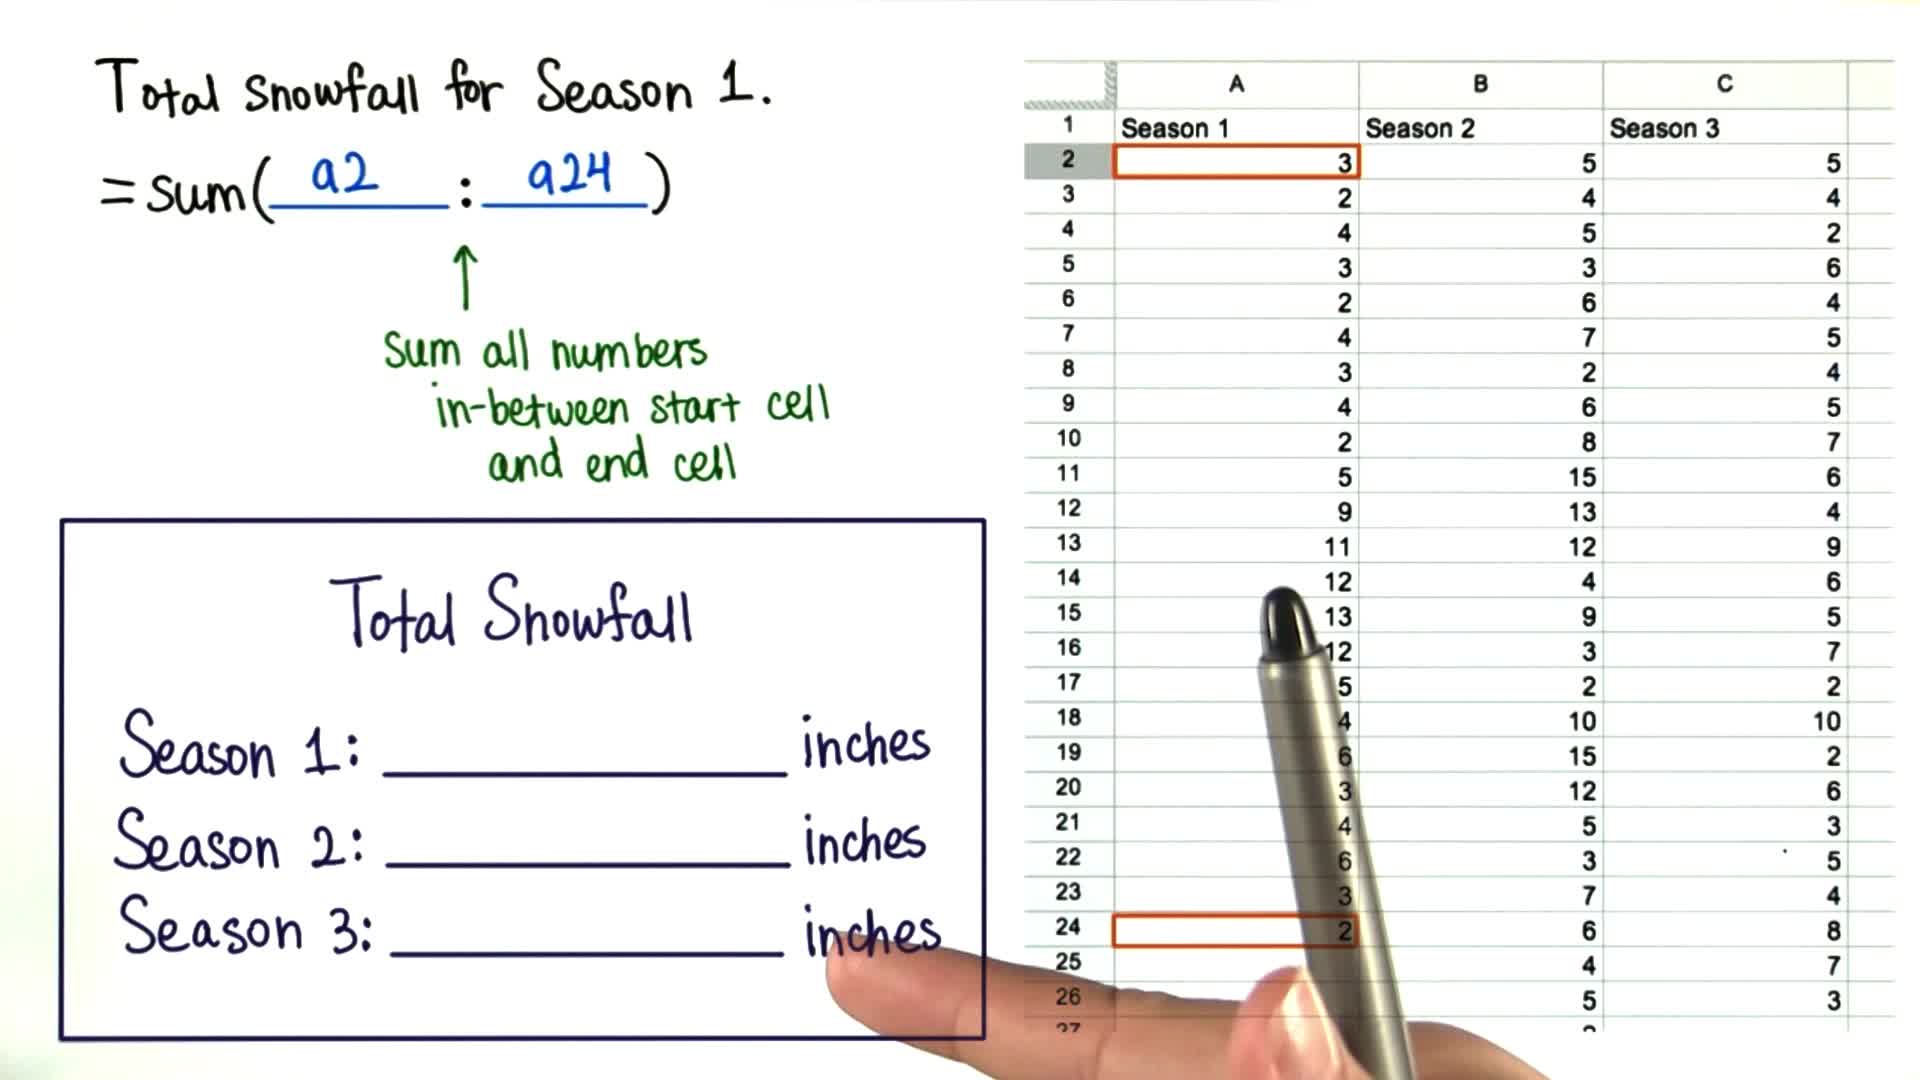 Total Snowfall for Season 1.
=sum( a2 : a24 )
↑
Sum all numbers
in-between start cell
and end cell
Total Snowfall
Season 1: ________ inches
Season 2: ________ inches
Season 3: ________ inches
A B C
1 Season 1 Season 2 Season 3
2 3 5 5
3 2 4 4
4 4 5 2
5 3 3 6
6 2 6 4
7 4 7 5
8 3 2 4
9 4 6 5
10 2 8 7
11 5 15 6
12 9 13 4
13 11 12 9
14 12 4 6
15 13 9 5
16 12 3 7
17 5 2 2
18 4 10 10
19 6 15 2
20 3 12 6
21 4 5 3
22 6 3 5
23 3 7 4
24 2 6 8
25 4 7
26 5 3